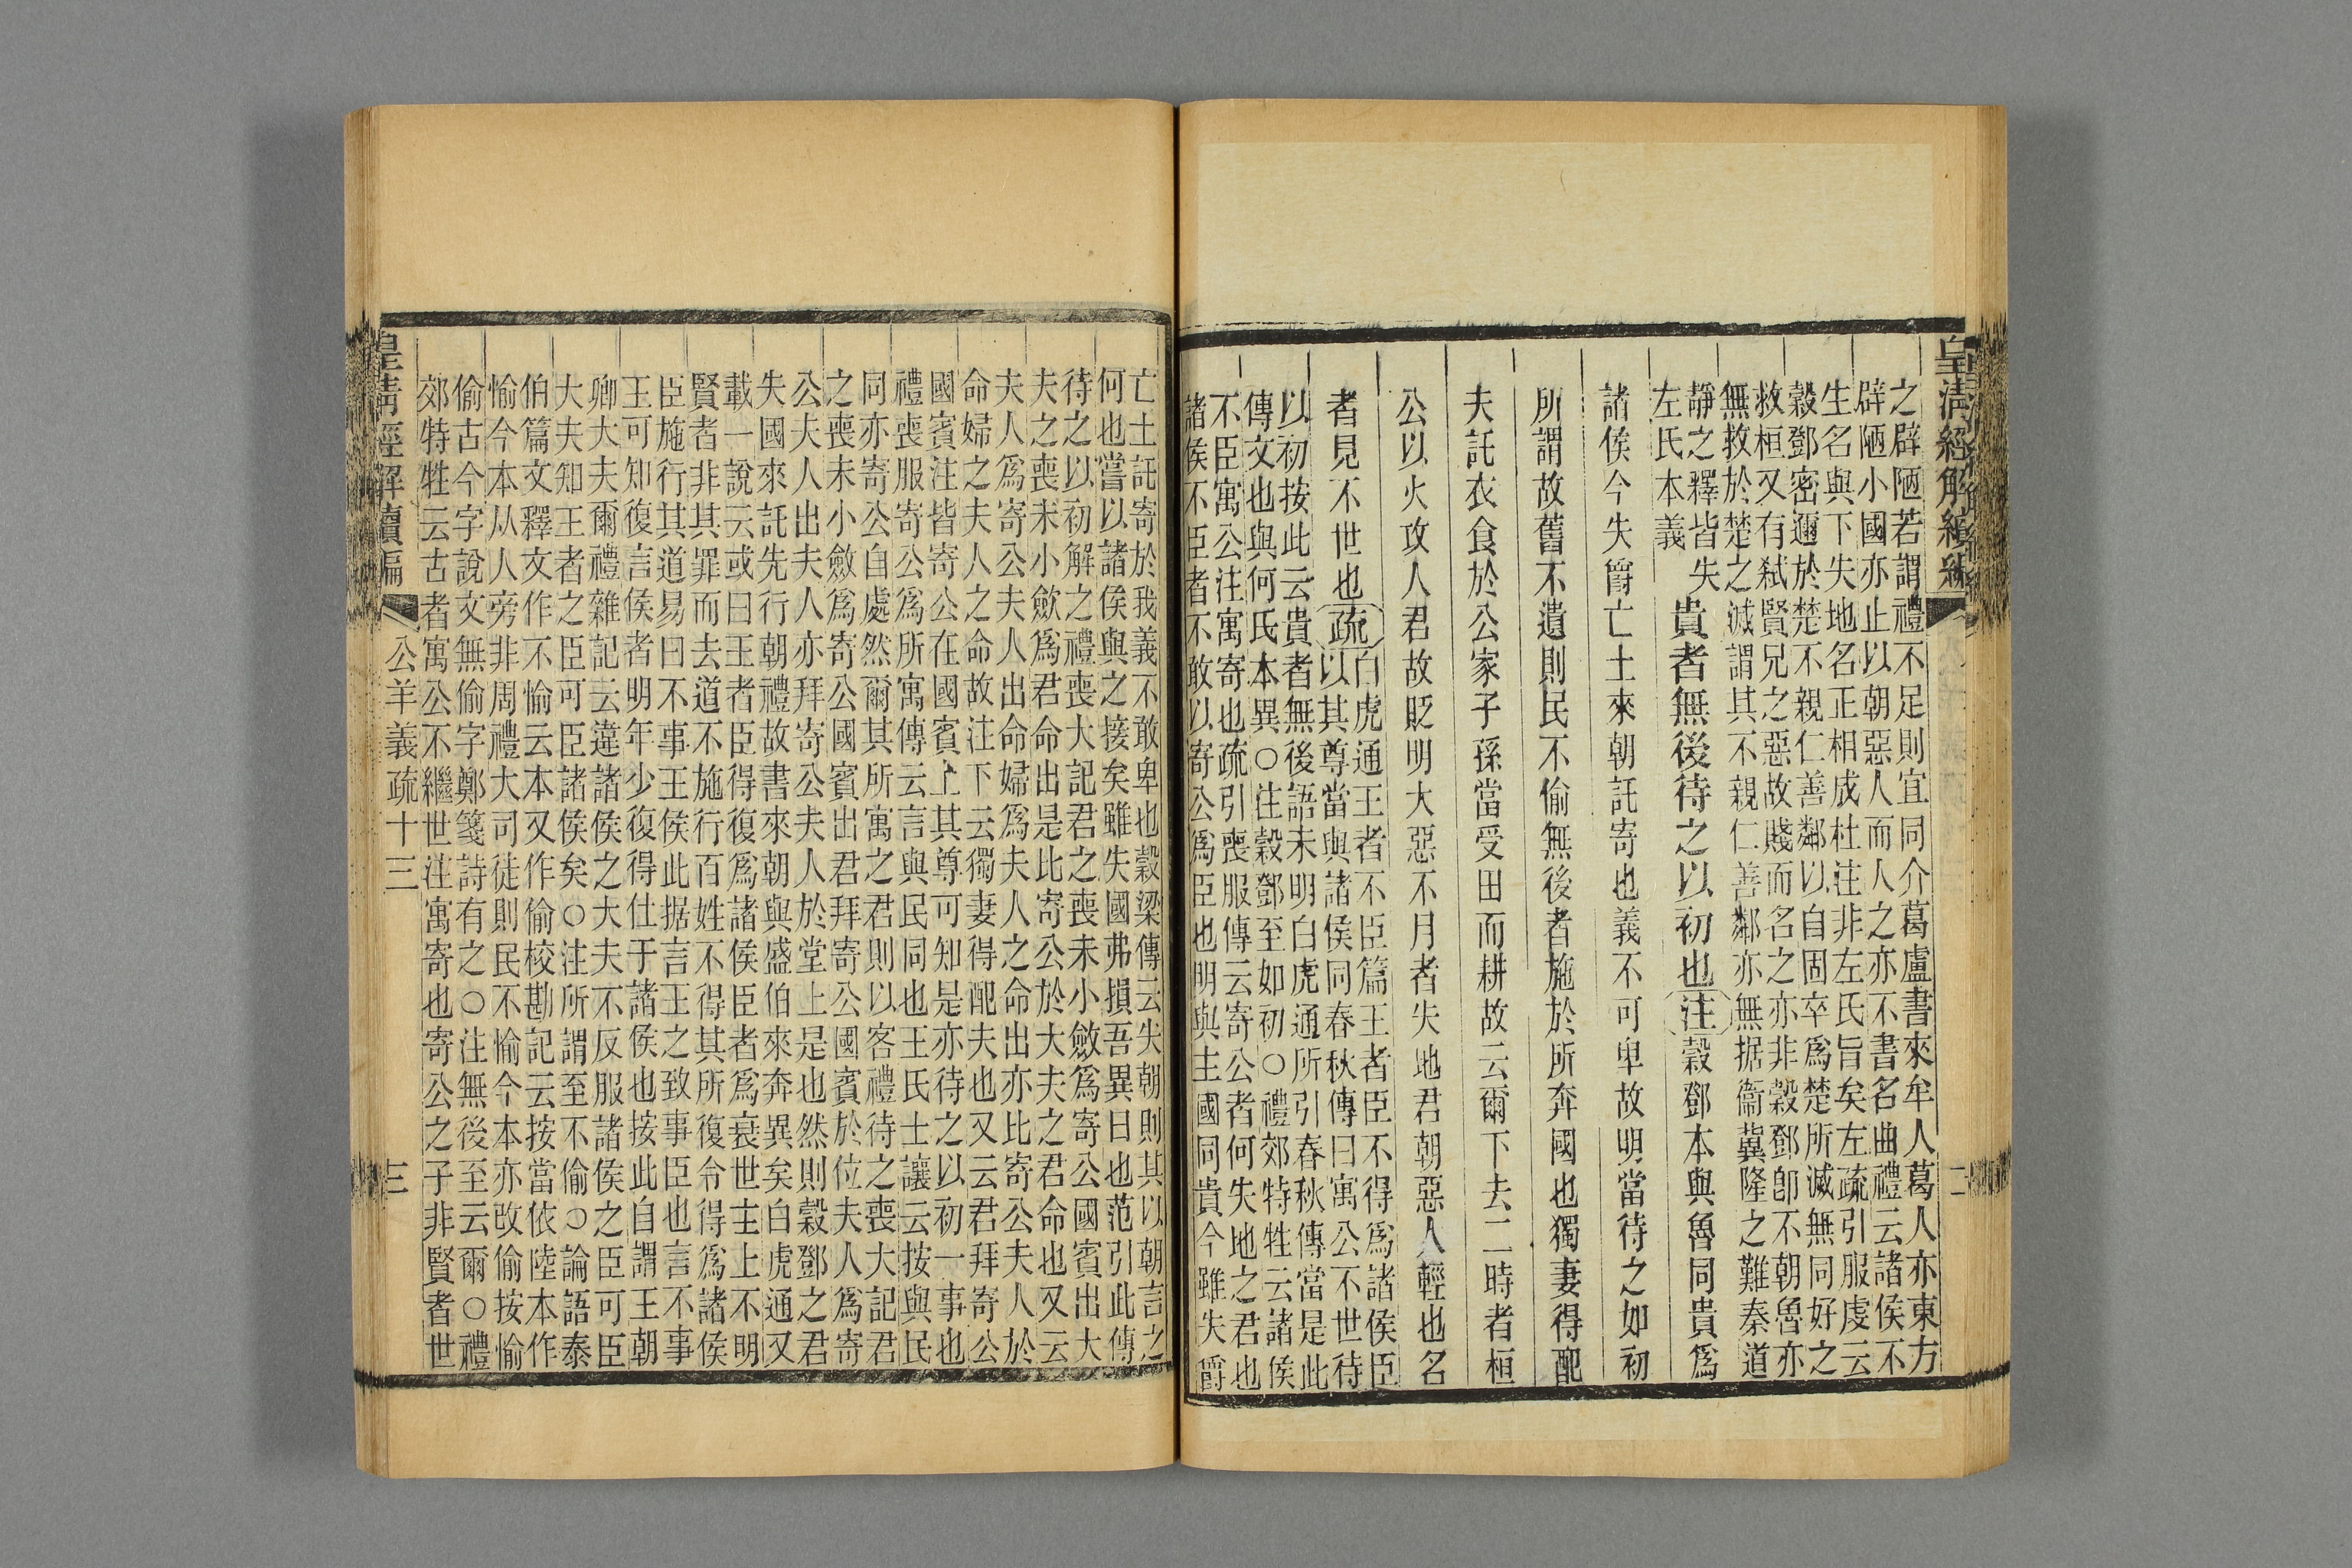 皇清經解續編
之辟陋若謂禮不足則宜同介葛盧書來牟人葛人亦東方
辟陋小國亦止以朝惡人而人之亦不書名曲禮云諸侯不
生名與下失地名正相成杜注非左氏旨矣左疏引服虔云
穀鄧密邇於楚不親仁善鄰以自固卒為楚所滅無同好之
救桓又有弑賢兄之惡故賤而名之亦非穀鄧卽不朝魯亦
無救於楚之滅謂其不親仁善鄰亦無据衞冀隆之難秦道
靜之釋皆失
左氏本義
貴者無後待之以初也注穀鄧本與魯同貴爲
諸侯今失爵亡土來朝託寄也義不可卑故明當待之如初
所謂故舊不遺則民不偷無後者施於所奔國也獨妻得配
夫託衣食於公家子孫當受田而耕故云爾下去二時者桓
公以火攻人君故貶明大惡不月者失地君朝惡人輕也名
者見不世也疏
白虎通王者不臣篇王者臣不得爲諸侯臣
以其尊當與諸侯同春秋傳曰寓公不世待
以初按此云貴者無後語未明白虎通所引春秋傳當是此
傳文也與何氏本異○注穀鄧至如初○禮郊特牲云諸侯
不臣寓公注寓寄也疏引喪服傳云寄公者何失地之君也
諸侯不臣者不敢以寄公爲臣也明與主國同貴今雖失爵
二
亡土託寄於我義不敢卑也穀梁傳云失朝則其以朝言之
何也嘗以諸侯與之接矣雖失國弗損吾異日也范引此傳
待之以初解之禮喪大記君之喪未小斂爲寄公國賓出大
夫之喪未小斂爲君命出是比寄公於大夫之君命也又云
夫人爲寄公夫人出命婦爲夫人之命出亦比寄公夫人於
命婦之夫人之命故注下云獨妻得配夫也又云君拜寄公
國賓注皆寄公在國賓上其尊可知是亦待之以初一事也
禮喪服寄公爲所寓傳云言與民同也王氏士讓云按與民
同亦寄公自處然爾其所寓之君則以客禮待之喪大記君
之喪未小斂爲寄公國賓出君拜寄公國賓於位夫人爲寄
公夫人出夫人亦拜寄公夫人於堂上是也然則穀鄧之君
失國來託先行朝禮故書來朝與盛伯來奔異矣白虎通又
載一說云或曰王者臣得復爲諸侯臣者爲衰世主上不明
賢者非其罪而去道不施行百姓不得其所復令得爲諸侯
臣施行其道易曰不事王侯此据言王之致事臣也言不事
王可知復言侯者明年少復得仕于諸侯也按此自謂王朝
卿大夫爾禮雜記云違諸侯之大夫不反服諸侯之臣可臣
大夫知王者之臣可臣諸侯矣○注所謂至不偷○論語泰
伯篇文釋文作不愉云本又作偷校勘記云按當依陸本作
愉今本从人旁非周禮大司徒則民不愉今本亦改偷按愉
偷古今字說文無偷字鄭箋詩有之○注無後至云爾○禮
郊特牲云古者寓公不繼世注寓寄也寄公之子非賢者世
皇淸經解續編
公羊義疏十三
三